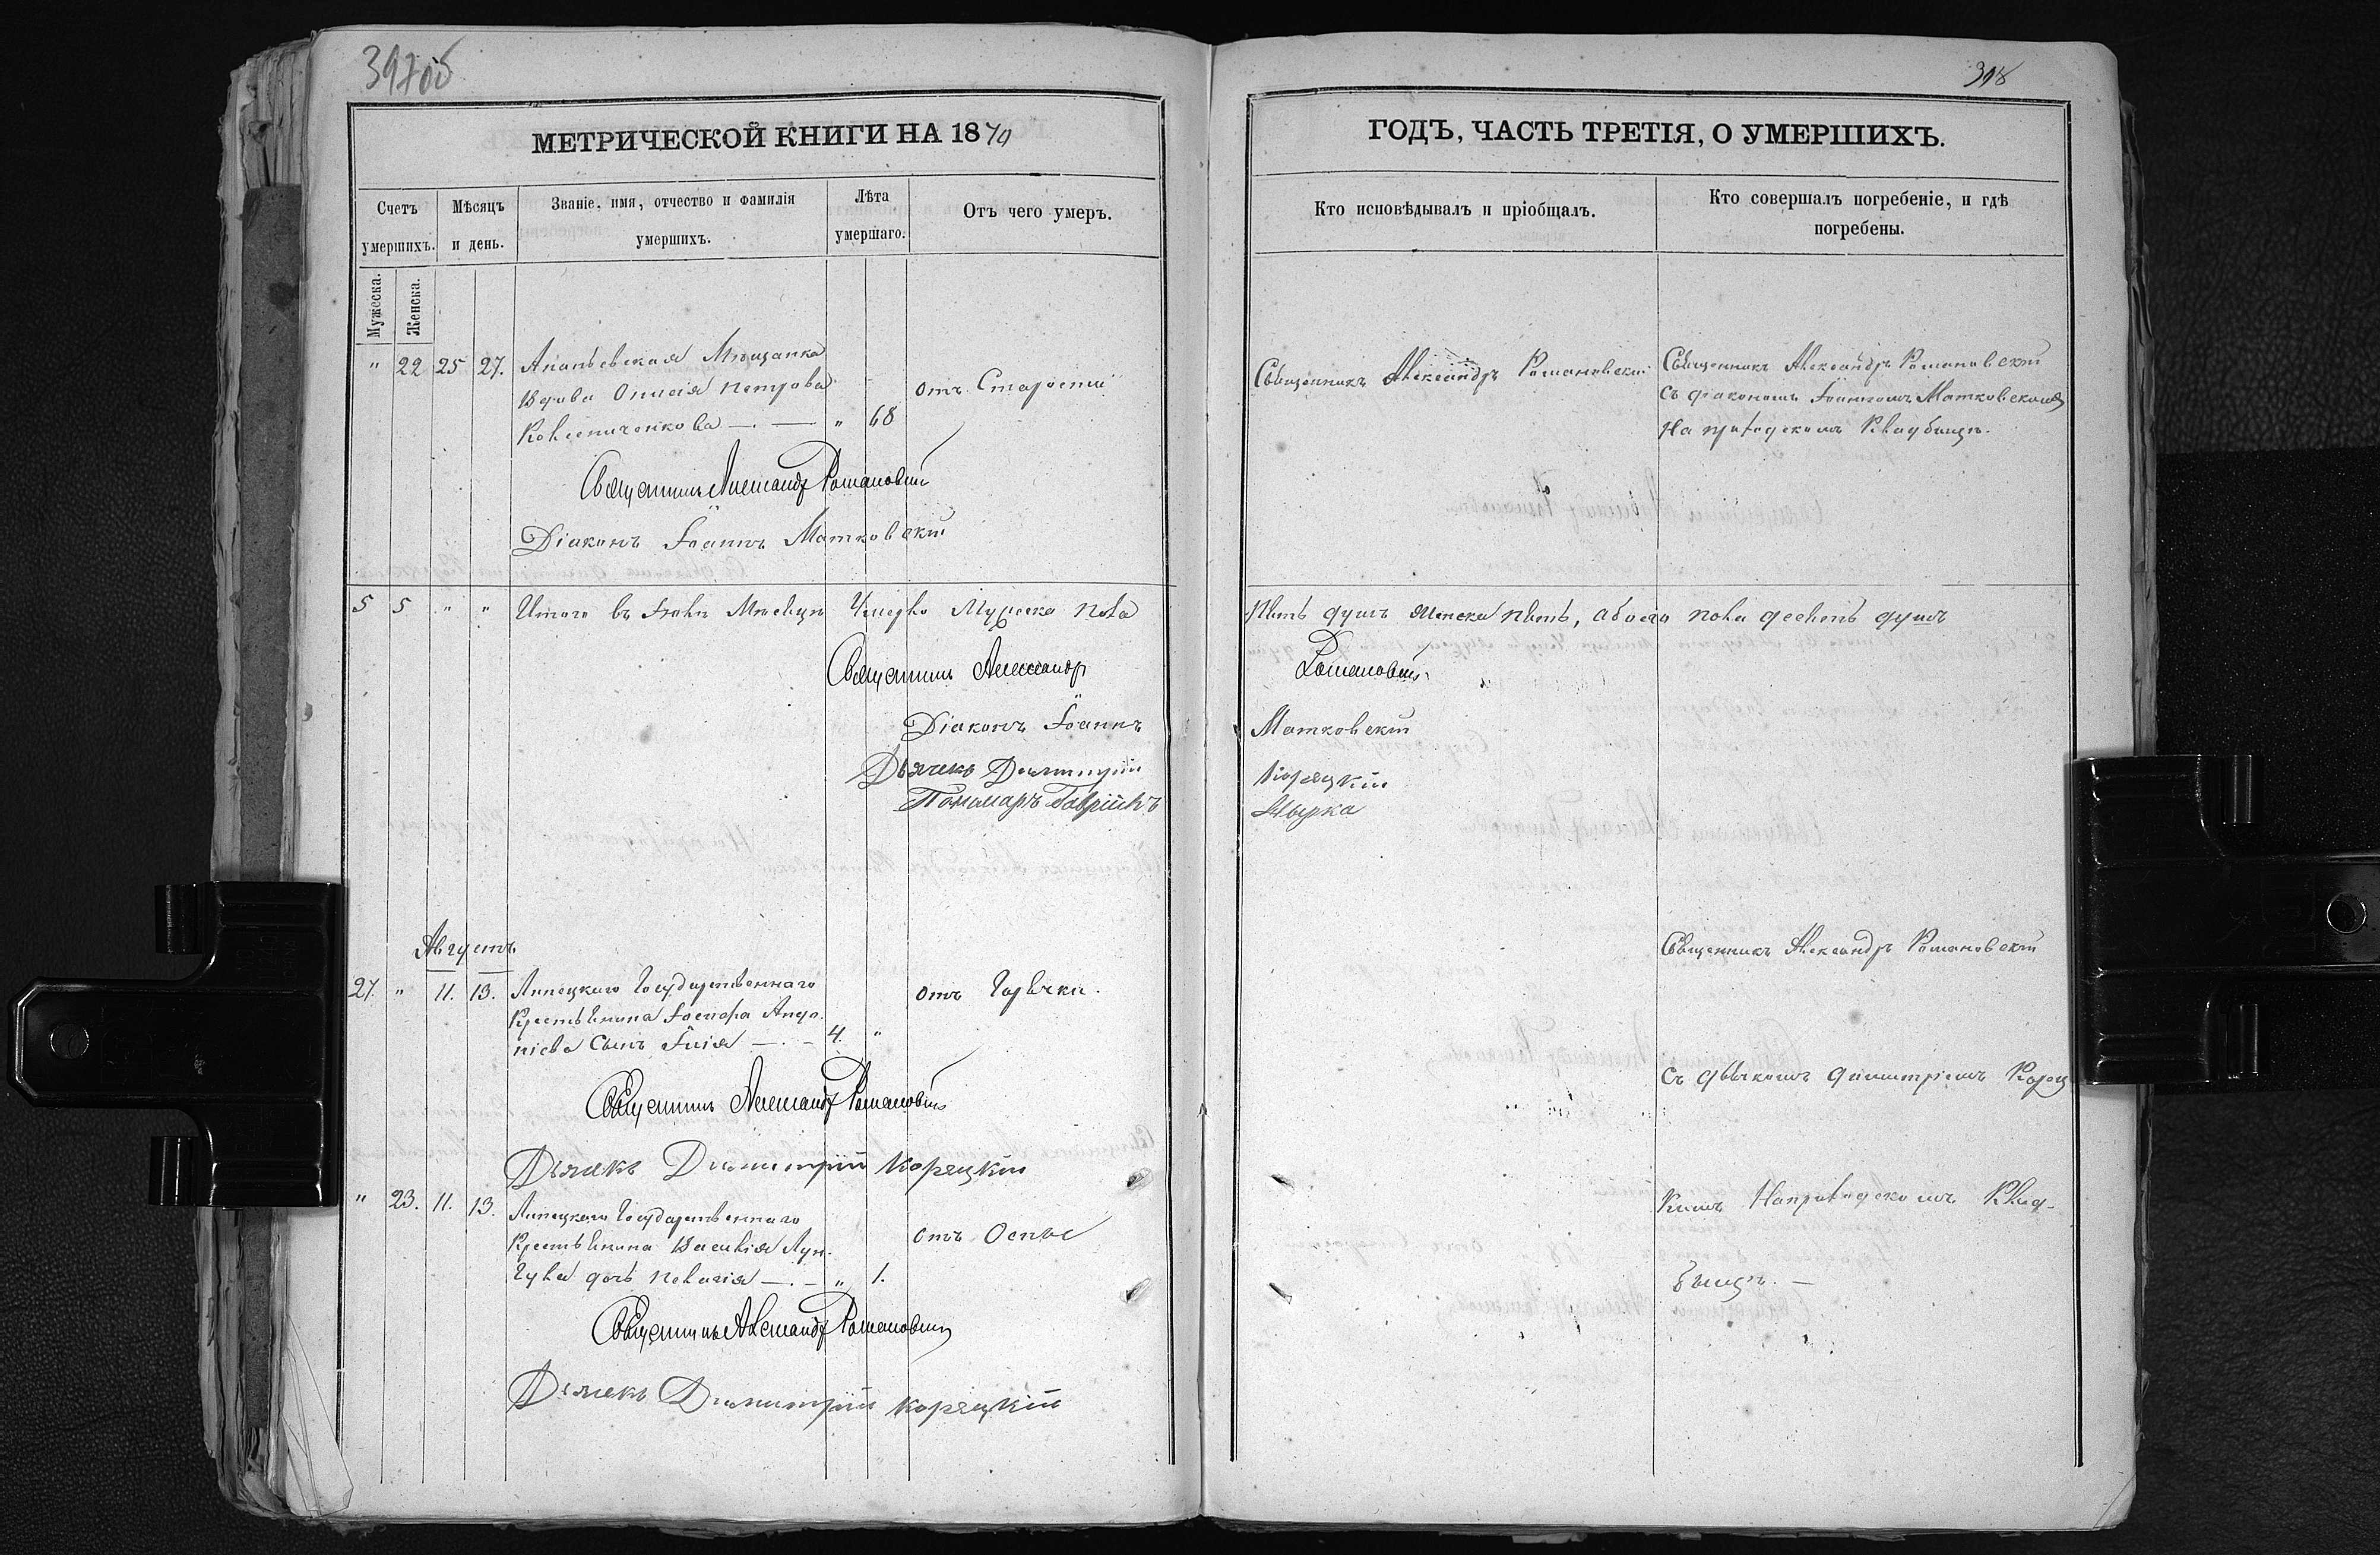 318
МЕТРИЧЕСКОЙ КНИГИ НА 1870
ГОДЪ, ЧАСТЬ ТРЕТІЯ, О УМЕРШИХЪ.
Счетъ умершихъ.
Мужеска.
Женска.
Мѣсяцъ и день.
Званіе, имя, отчество и фамилія умершихъ.
Лѣта умершаго.
Отъ чего умеръ.
Кто исповѣдывалъ и пріобщалъ.
Кто совершалъ погребеніе, и гдѣ погребены.
" 22 25 27. Ананьевская Мѣщанка
Вдова Петрова
" 68
отъ Старости
Священникъ Александръ Романовскій
Священникъ Александръ Романовскій
съ діакономъ Іоанномъ Матковскимъ
на приходскомъ кладбищѣ.
Священникъ Александръ Романовскій
Діаконъ Іоаннъ Матковскій
5 5 " " Итого въ Іюлѣ Мѣсяцѣ Умерло Мужеска пола
пять душъ Женска пять, обоего пола десять душъ
Священникъ Александръ Романовскій
Діаконъ Іоаннъ Матковскій
Дьячекъ Димитрій Корецкій
Пономарь Гавріилъ
Августъ
27. " 11. 13. Липецкаго Государственнаго
Крестьянина
сынъ Илія — 4. "
отъ Горячки.
Священникъ Александръ Романовскій
съ дьячкомъ Димитріемъ Корец
Священникъ Александръ Романовскій
Дьячекъ Димитрій Корецкій
" 23. 11. 13. Липецкаго Государственнаго
Крестьянина Василія Лун
гула дочь Пелагія — " 1.
отъ Оспы
кимъ на приходскомъ клад-
бищѣ. —
Священникъ Александръ Романовскій
Дьячекъ Димитрій Корецкій